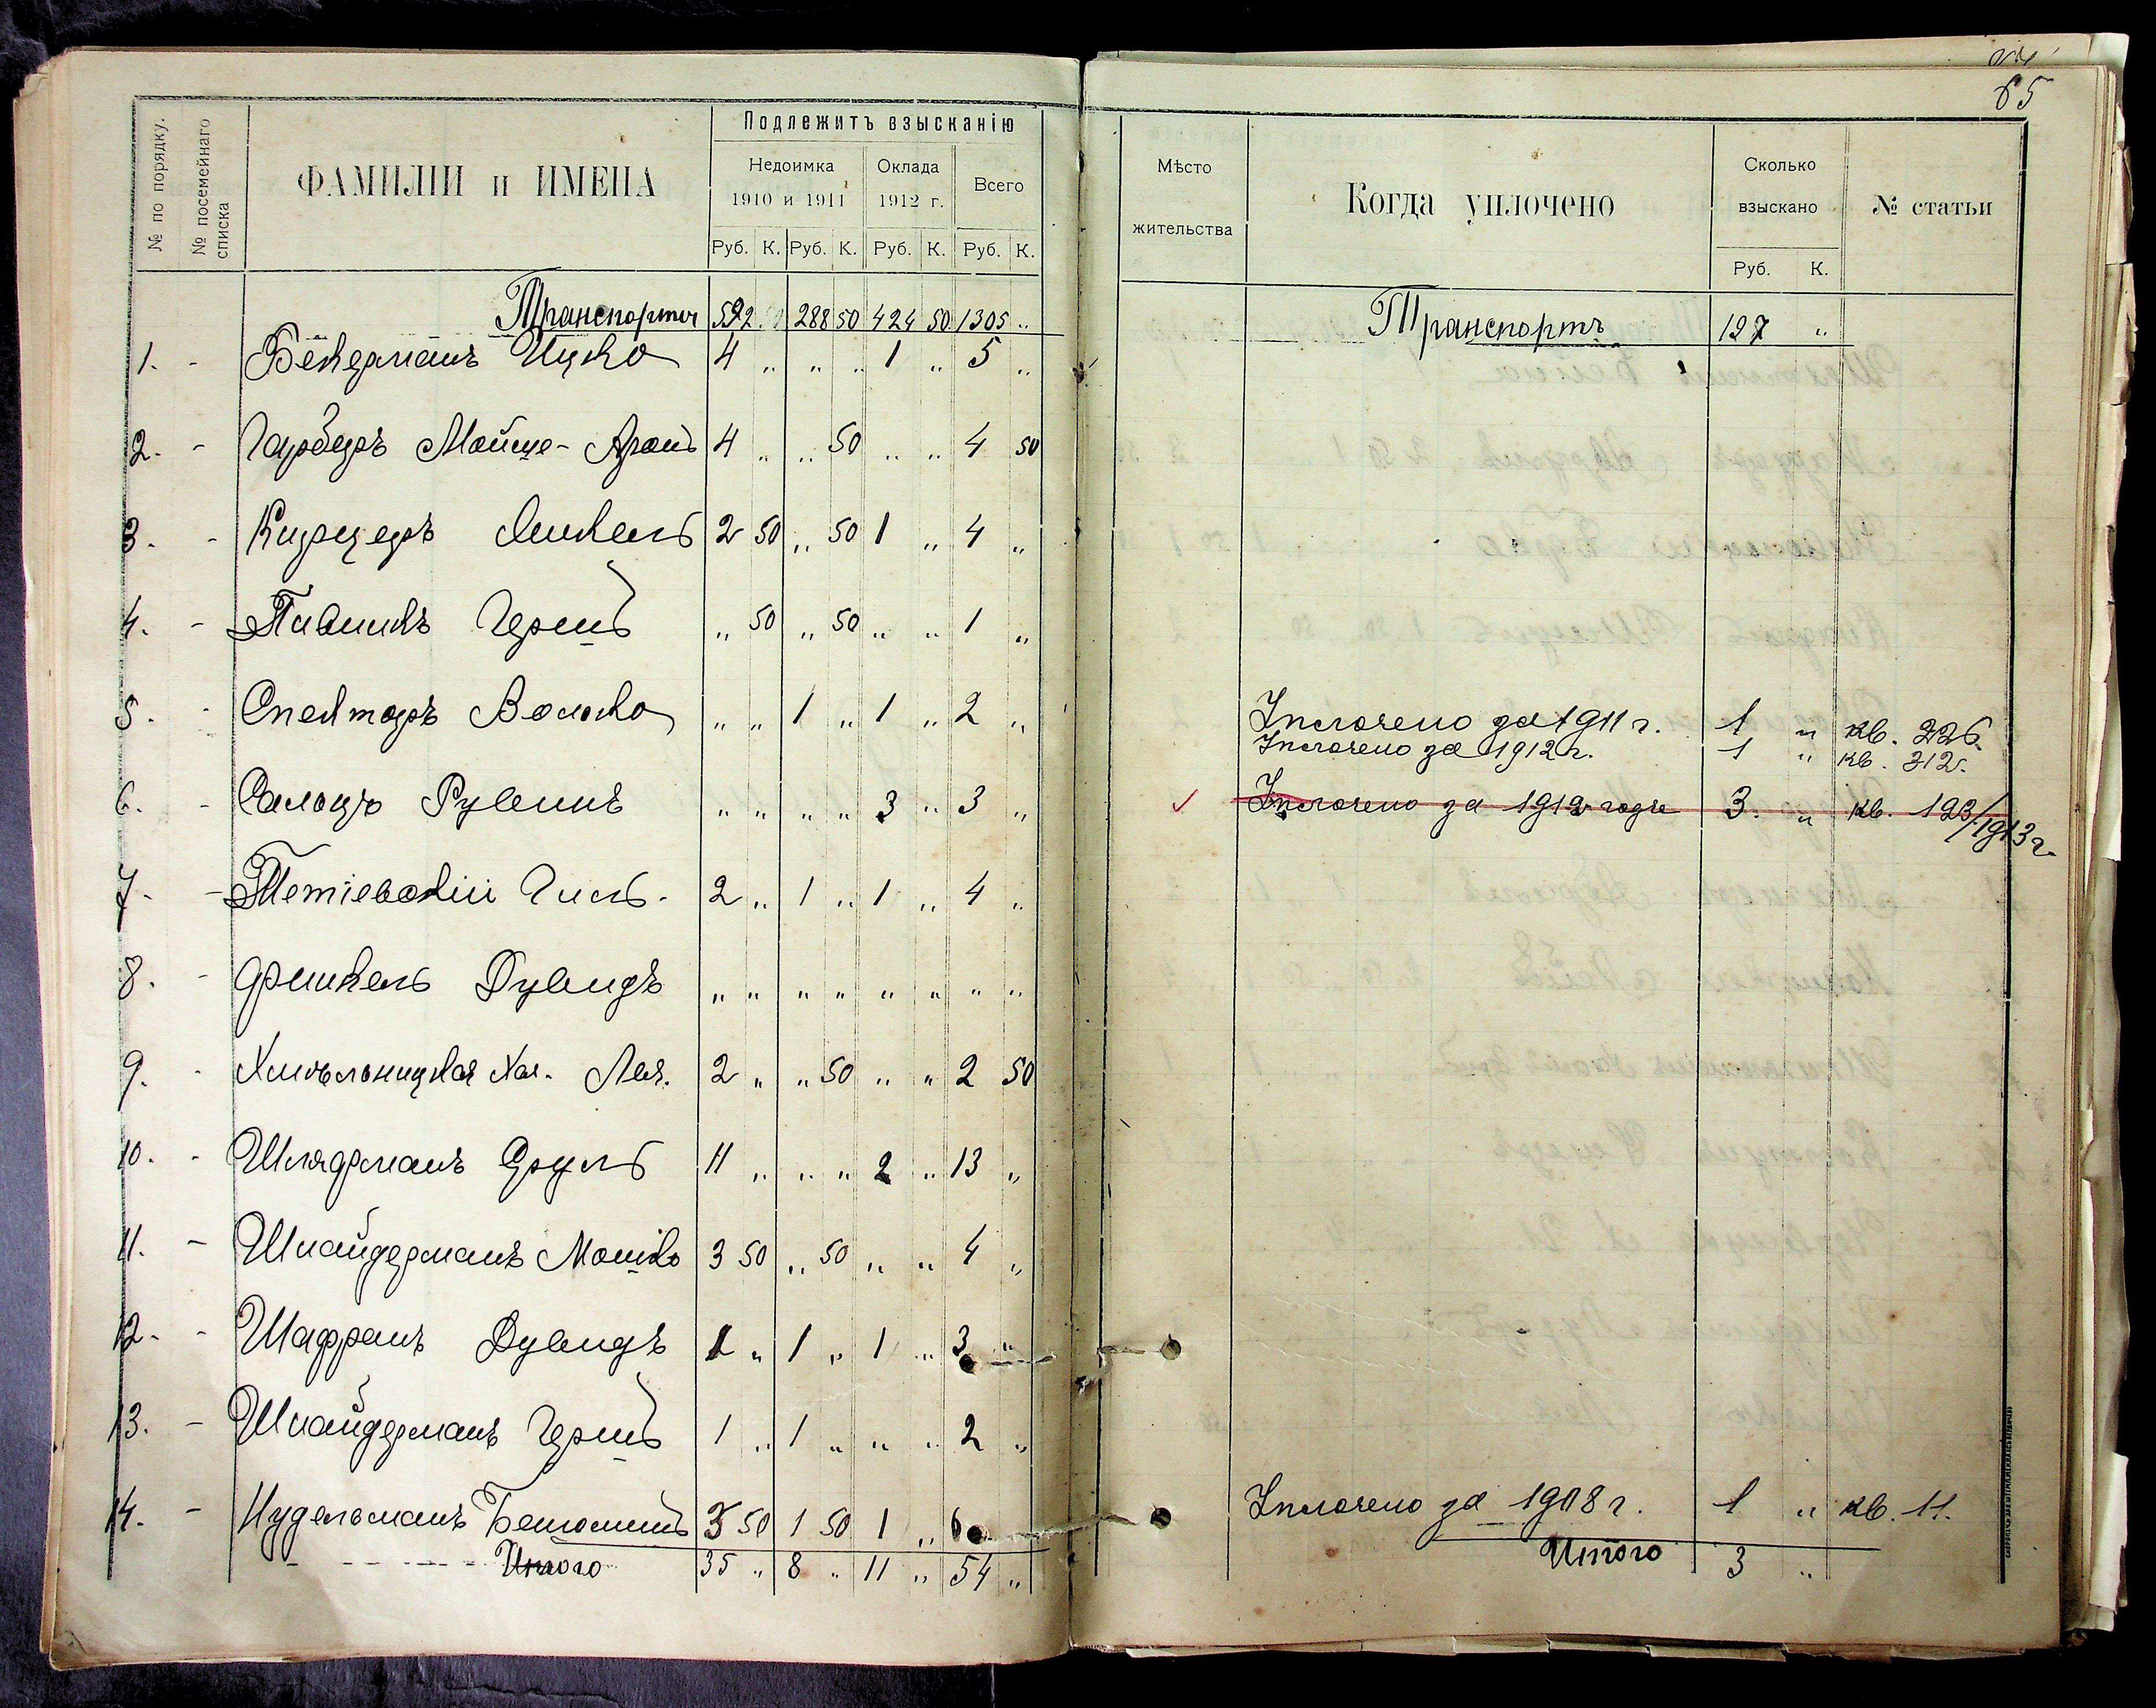 65
№ по порядку.
№ посемейнаго списка
ФАМИЛІИ и ИМЕНА
Подлежитъ взысканію
Недоимка
1910 и 1911
Оклада
1912 г.
Всего
Руб. К. Руб. К. Руб. К. Руб. К.
Мѣсто
жительства
Когда уплочено
Сколько
взыскано
Руб. К.
№ статьи
Транспортъ 592 288 50 424 50 1305 „
Транспортъ 127 „
1. - Бендерманъ Ицко 4 „ „ „ 1 „ 5 „
2. - Гарберъ Мойше-Аронъ 4 „ „ 50 „ „ 4 50
3. - Кирцеръ Янкель 2 50 „ 50 1 „ 4 „
4. - Пивникъ Гершъ „ 50 „ 50 „ „ 1 „
5. - Спекторъ Волько „ „ 1 „ 1 „ 2 „
Уплочено за 1911 г. 1 „ кв. 226.
Уплочено за 1912 г. 1 „ кв. 312.
6. - Сальцъ Рувинъ „ „ „ „ 3 „ 3 „
Уплочено за 1912 годъ 3. „ кв. 123/1913 г.
7. - Тетіевскій Гиль. 2 „ 1 „ 1 „ 4 „
8. - Финкель Дувидъ „ „ „ „ „ „ „ „
9. - Хмѣльницкая Хая-Лея. 2 „ „ 50 „ „ 2 50
10. - Шлядманъ Сруль 11 „ „ „ 2 „ 13 „
11. - Шнайдерманъ Мошко 3 50 „ 50 „ „ 4 „
12. - Шафранъ Дувидъ 1 „ 1 „ 1 „ 3 „
13. - Шнайдерманъ Гершъ 1 „ 1 „ „ „ 2 „
14. - Нудельманъ Беньоминъ 3 50 1 50 1 „ 6
Уплочено за 1908 г. 1 „ кв. 11.
Итого 35 „ 8 „ 11 „ 54 „
Итого 3 „